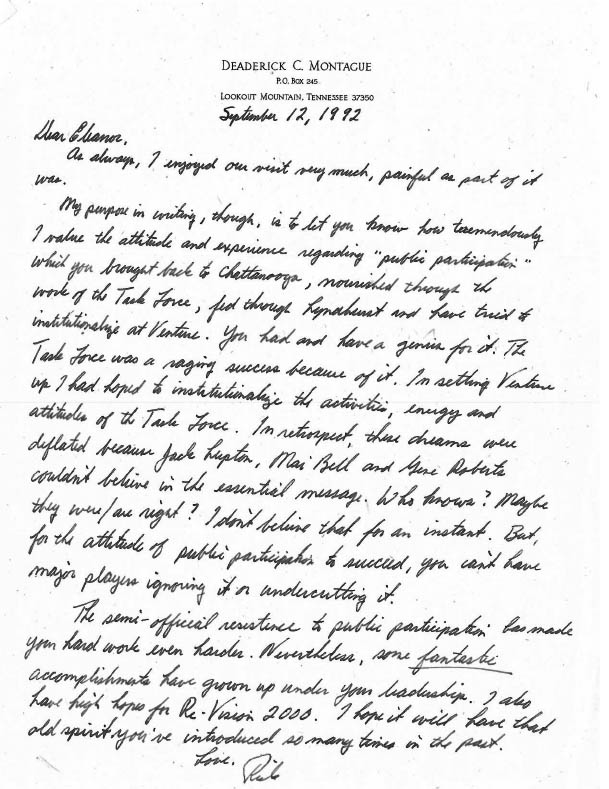 DEADERICK C. MONTAGUE
P.O. BOX 245
LOOKOUT MOUNTAIN, TENNESSEE 37350
September 12, 1992
Dear Eleanor,
As always, I enjoyed our visit very much, painful as part of it
was.
My purpose in writing, though, is to let you know how tremendously
I value the attitude and experience regarding "public participation"
which you brought back to Chattanooga, nourished through the
work of the Task Force, fed through Lyndhurst and have tried to
institutionalize at Venture. You had and have a genius for it. The
Task Force was a raging success because of it. In setting Venture
up I had hoped to institutionalize the activities, energy and
attitudes of the Task Force. In retrospect, these dreams were
deflated because Jack Lupton, Mai Bell and Gene Roberts
couldn't believe in the essential message. Who knows? Maybe
they were/are right? I don't believe that for an instant. But,
for the attitude of public participation to succeed, you can't have
major players ignoring it or undercutting it.
The semi-official resistence to public participation has made
your hard work even harder. Nevertheless, some fantastic
accomplishments have grown up under your leadership. I also
have high hopes for Re-Vision 2000. I hope it will have that
old spirit you've introduced so many times in the past.
Love,
Rick